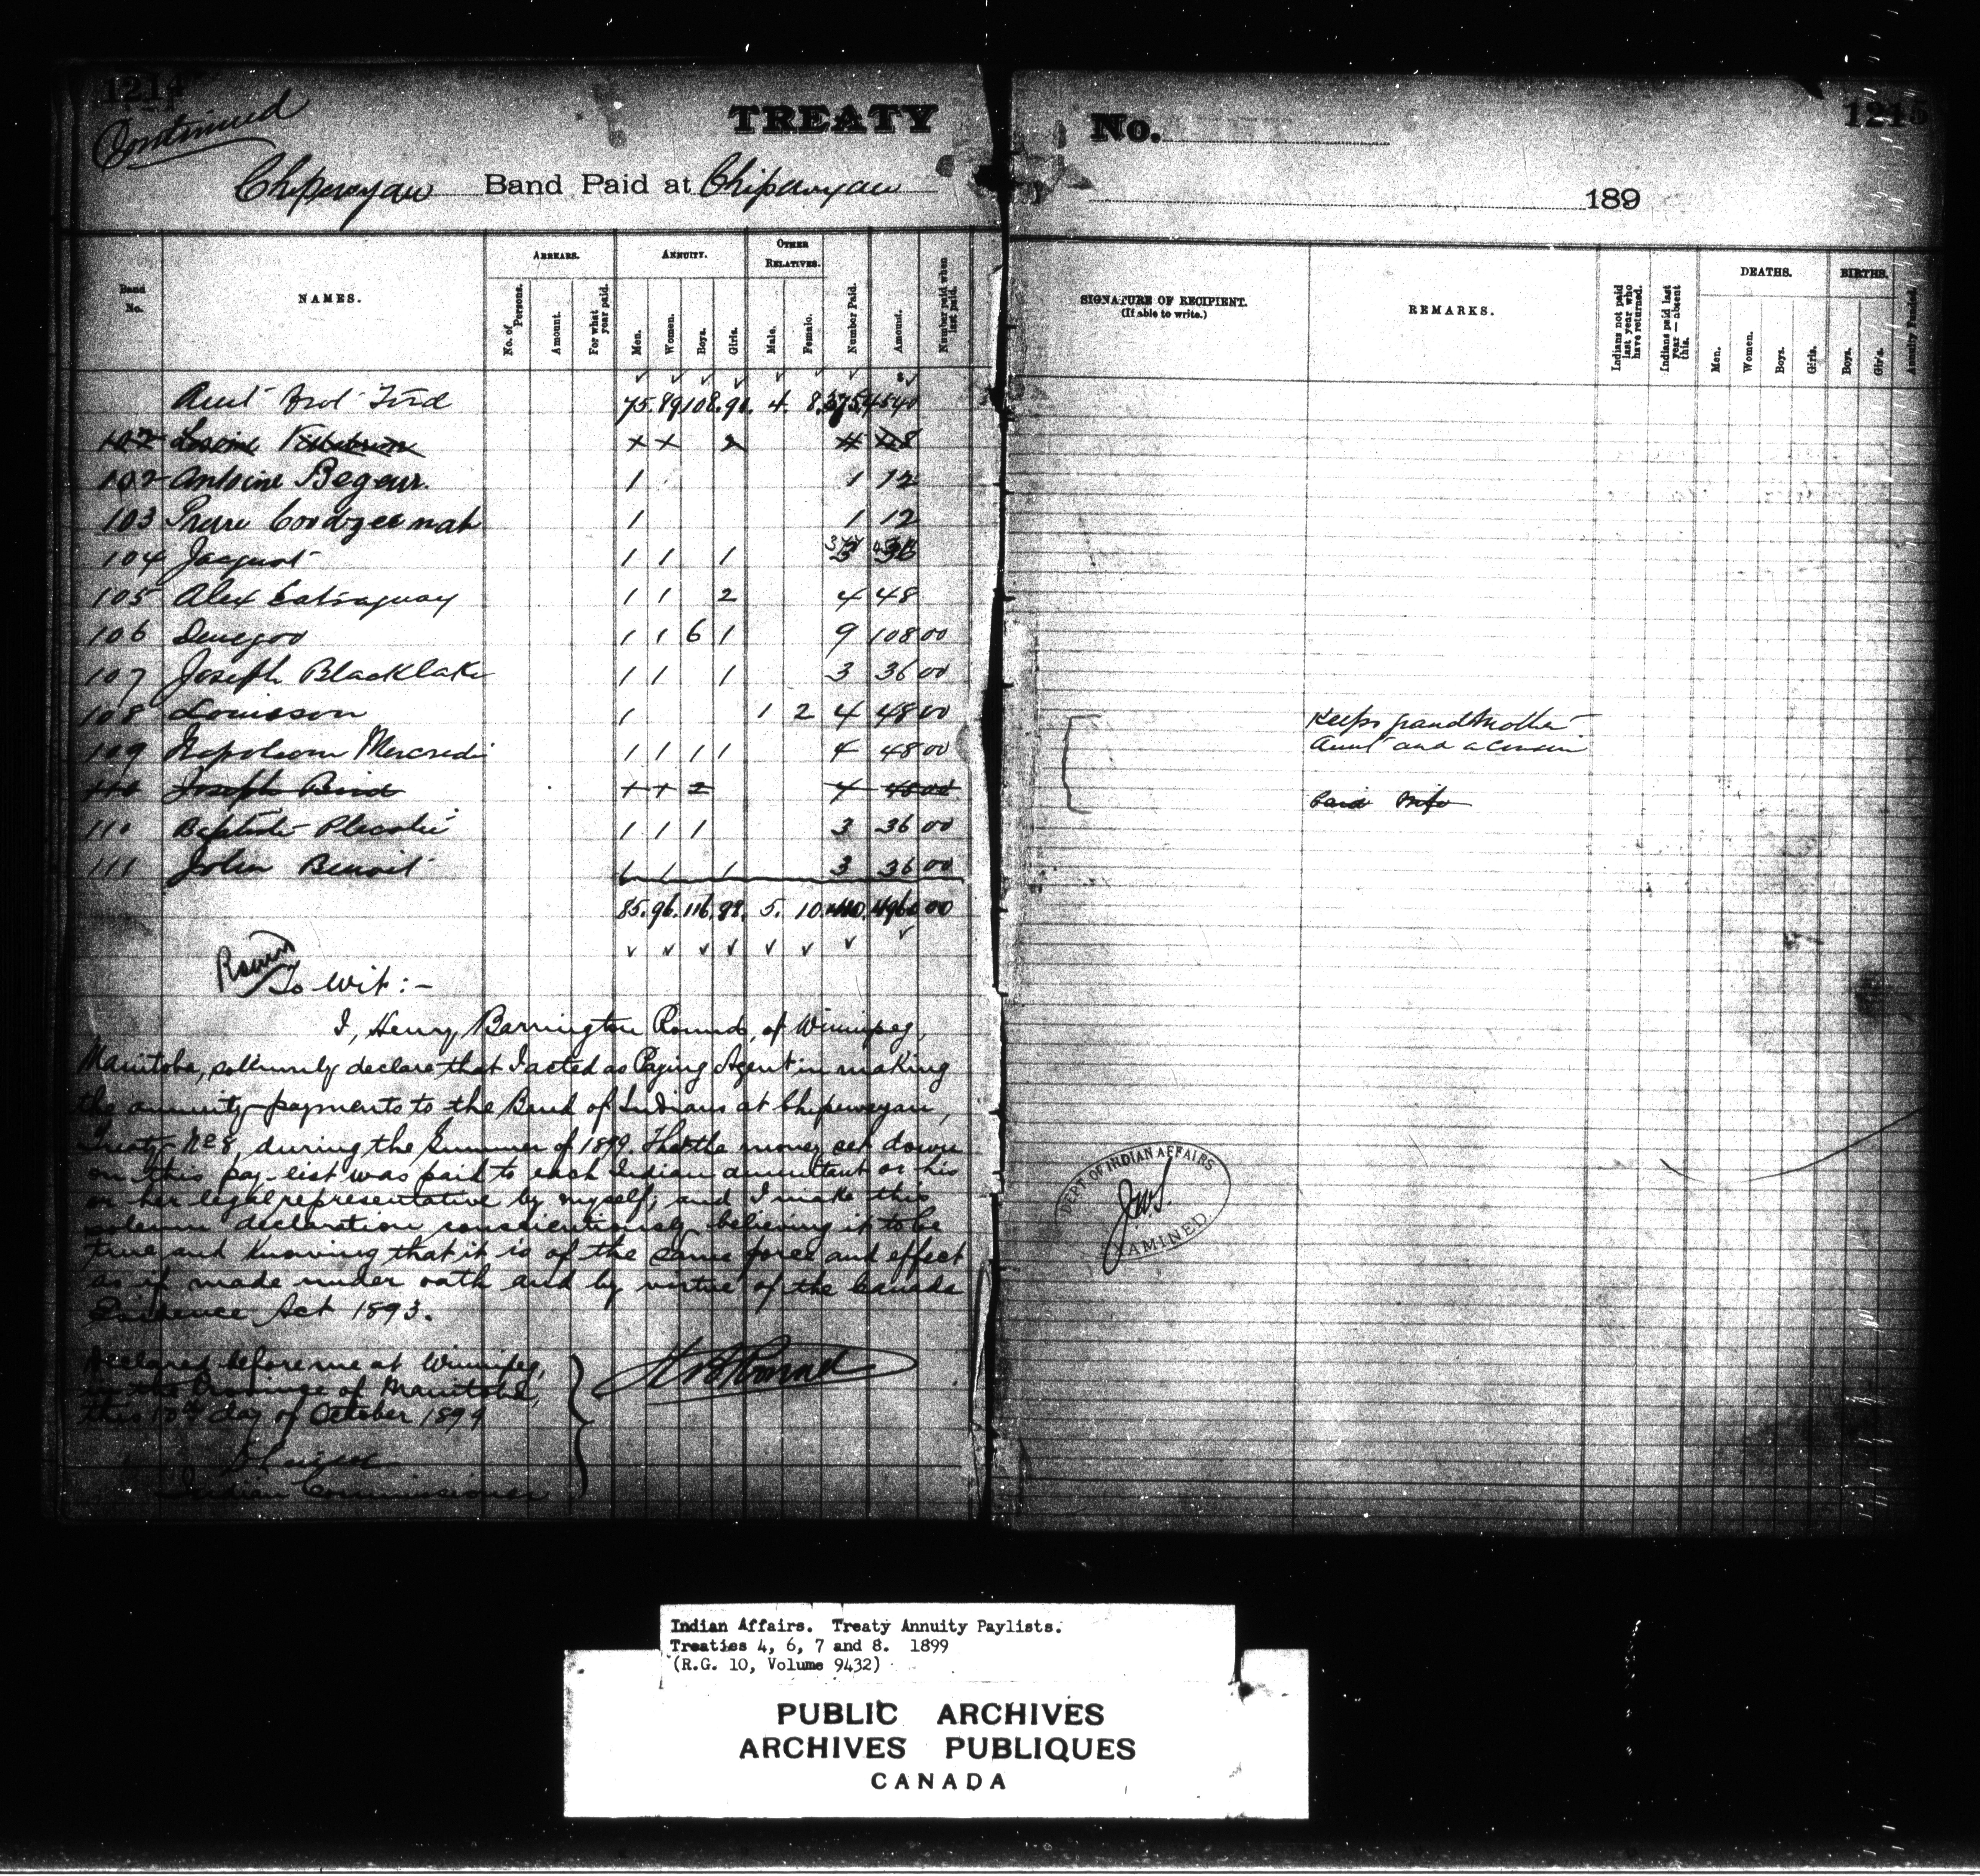 1214
Continued
TREATY No.
1215
Chipewyan Band Paid at Chipewyan
189
Band No.
NAMES.
ARREARS.
No. of Persons.
Amount.
For what year paid.
ANNUITY.
Men.
Women.
Boys.
Girls.
OTHER RELATIVES.
Male.
Female.
Number Paid.
Amount.
Number paid when last paid.
SIGNATURE OF RECIPIENT.
(If able to write.)
REMARKS.
Indians not paid last year who have returned.
Indians paid last year — absent this.
DEATHS.
Men.
Women.
Boys.
Girls.
BIRTHS.
Boys.
Girls.
Annuity Funded.
Amt Brot Frd 75. 89 108. 91. 4. 8. 375 4540
102
102 Antoine Begeur. 1 1 12
103 1 1 12
104 Jacquot 1 1 1 3 36
105 Alex 1 1 2 4 48
106 Denegoo 1 1 6 1 9 108 00
107 Joseph Blacklake 1 1 1 3 36 00
108 Louisson 1 1 2 4 48 00 Keeps grandmother
109 Napoleon Mercredi 1 1 1 1 4 48 00 Aunt and a cousin
110 Joseph Bird + + 2 4 48 00
110 Baptiste 1 1 1 3 36 00
111 John Benoit 1 1 1 3 36 00
85. 96. 116. 98. 5. 10 410. 4960 00
Round
To Wit :-
I, Henry Barrington Round, of Winnipeg,
Manitoba, solemnly declare that I acted as Paying Agent in making
the annuity payments to the Band of Indians at Chipeweyan,
Treaty No 8, during the Summer of 1899. That the money set down
on this pay-list was paid to each Indian annuitant or his
or her legal representative by myself; and I make this
solemn declaration conscientiously believing it to be
true and knowing that it is of the same force and effect
as if made under oath and by virtue of the Canada
Evidence Act 1893.
Declared before me at Winnipeg,
in the Province of Manitoba,
this 10th day of October 1899
H B Round
Indian Commissioner
DEPT OF INDIAN AFFAIRS
EXAMINED.
Indian Affairs. Treaty Annuity Paylists.
Treaties 4, 6, 7 and 8. 1899
(R.G. 10, Volume 9432)
PUBLIC ARCHIVES
ARCHIVES PUBLIQUES
CANADA